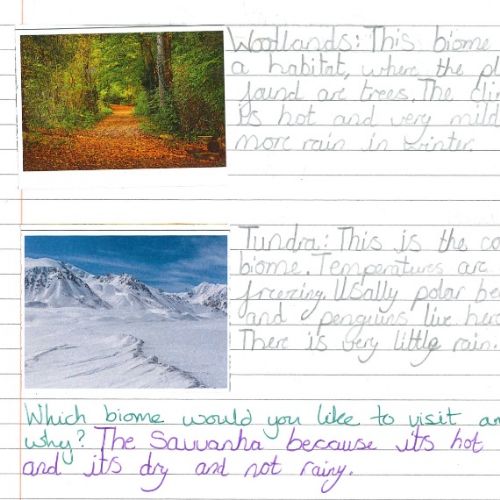 Woodlands: This biome
a habitat, where the pl
found are trees. The cli
is hot and very mild
more rain in winter.
Tundra: This is the co
biome. Temperatures are
freezing. Usally polar be
and penguins live her
There is very little rain.
Which biome would you like to visit an
why? The Savvanha because its hot
and its dry and not rainy.